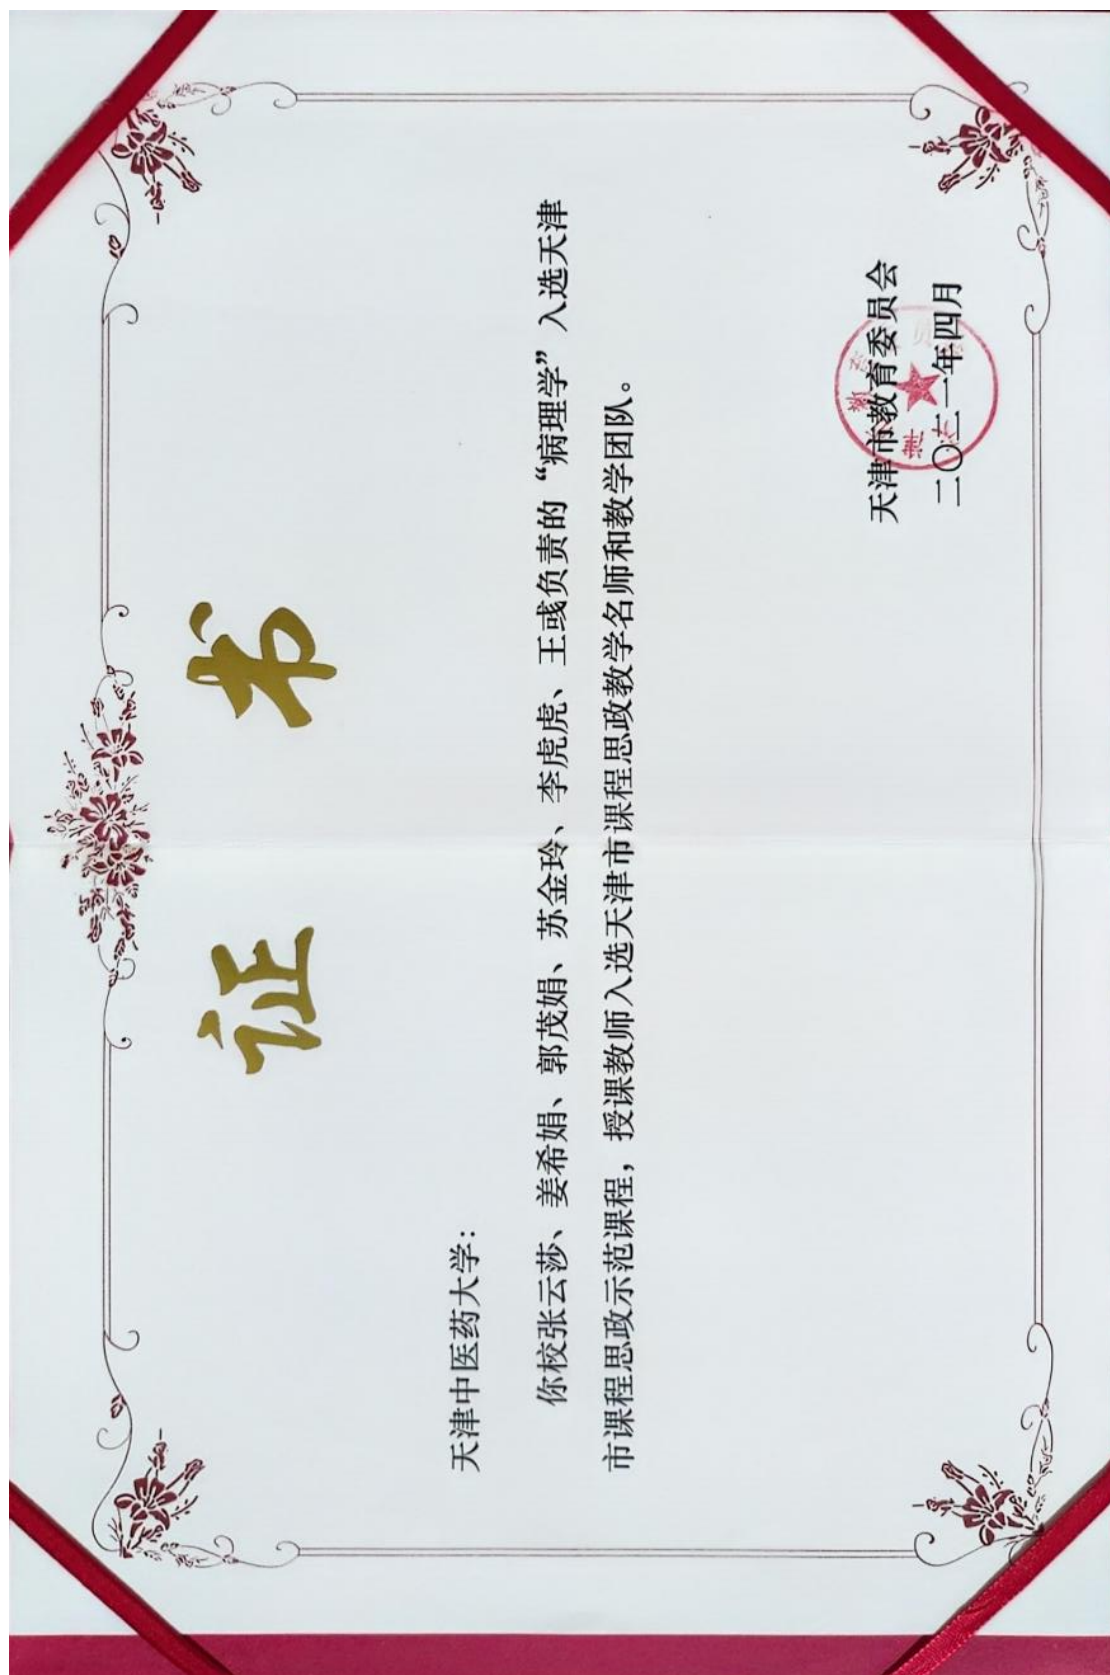 证书
天津中医药大学：
你校张云莎、姜希娟、郭茂娟、苏金玲、李虎虎、王彧负责的“病理学”入选天津
市课程思政示范课程，授课教师入选天津市课程思政教学名师和教学团队。
天津市教育委员会
二〇二一年四月